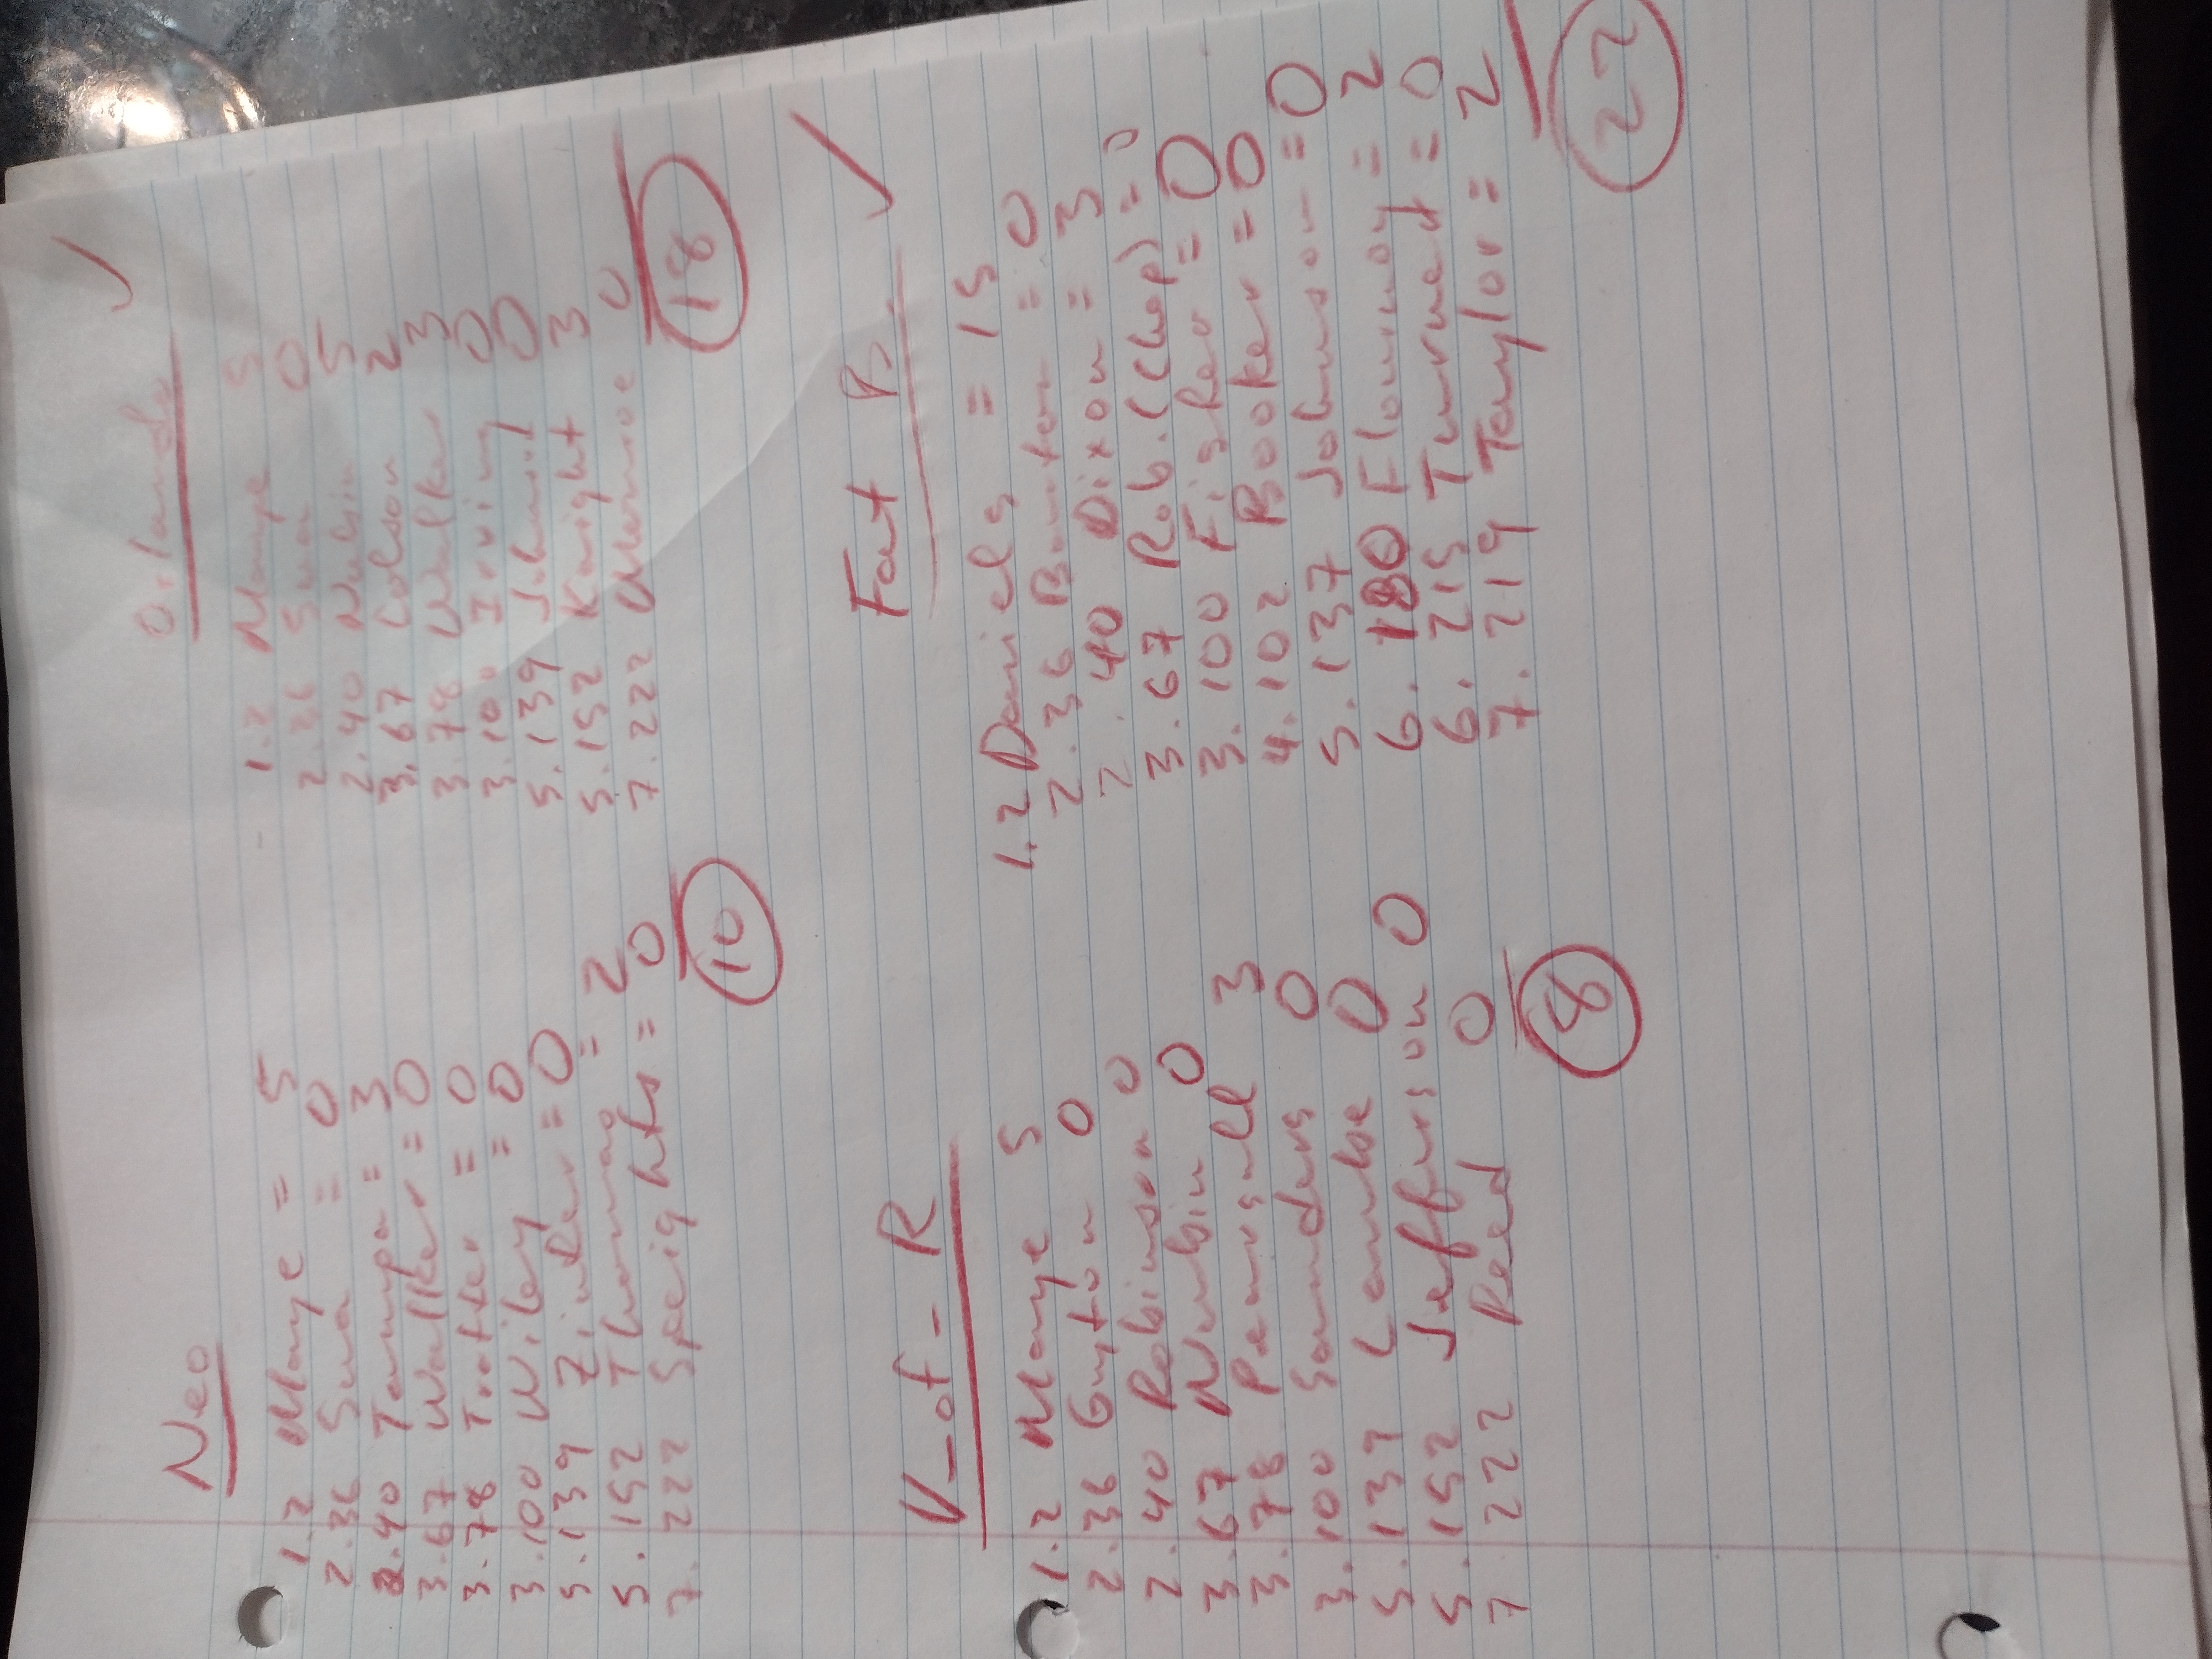 Neo
1.2 Maye = 5
2.36 Sua = 0
2.40 Tampa = 3
3.67 Walker = 0
3.78 Trotter = 0
3.100 Wiley = 0
5.139 Zinter = 0
5.152 Thomas = 2
7.222 Speights = 0
10
Orlando
1.2 Maye 5
2.36 Sua 0
2.40 Nubin 5
3.67 Colson 2
3.78 Walker 3
3.100 Irving 0
5.139 Johnny 0
5.152 Knight 3
7.222 Monroe 0
18
V-of-R
1.2 Maye 5
2.36 Guyton 0
2.40 Robinson 0
3.67 Nubin 0
3.78 Pearsall 3
3.100 Sanders 0
5.139 Cambe 0
5.152 Jefferson 0
7 222 Reed 0
8
Fat B.
1.2 Daniels = 15
2.36 Banton = 0
2.40 Dixon = 3
3.67 Rob.(Chop) = 0
3.100 Fisher = 0
4.102 Booker = 0
5.137 Johnson = 0
6.180 Flournoy = 2
6.215 Turner = 0
7.219 Taylor = 2
22